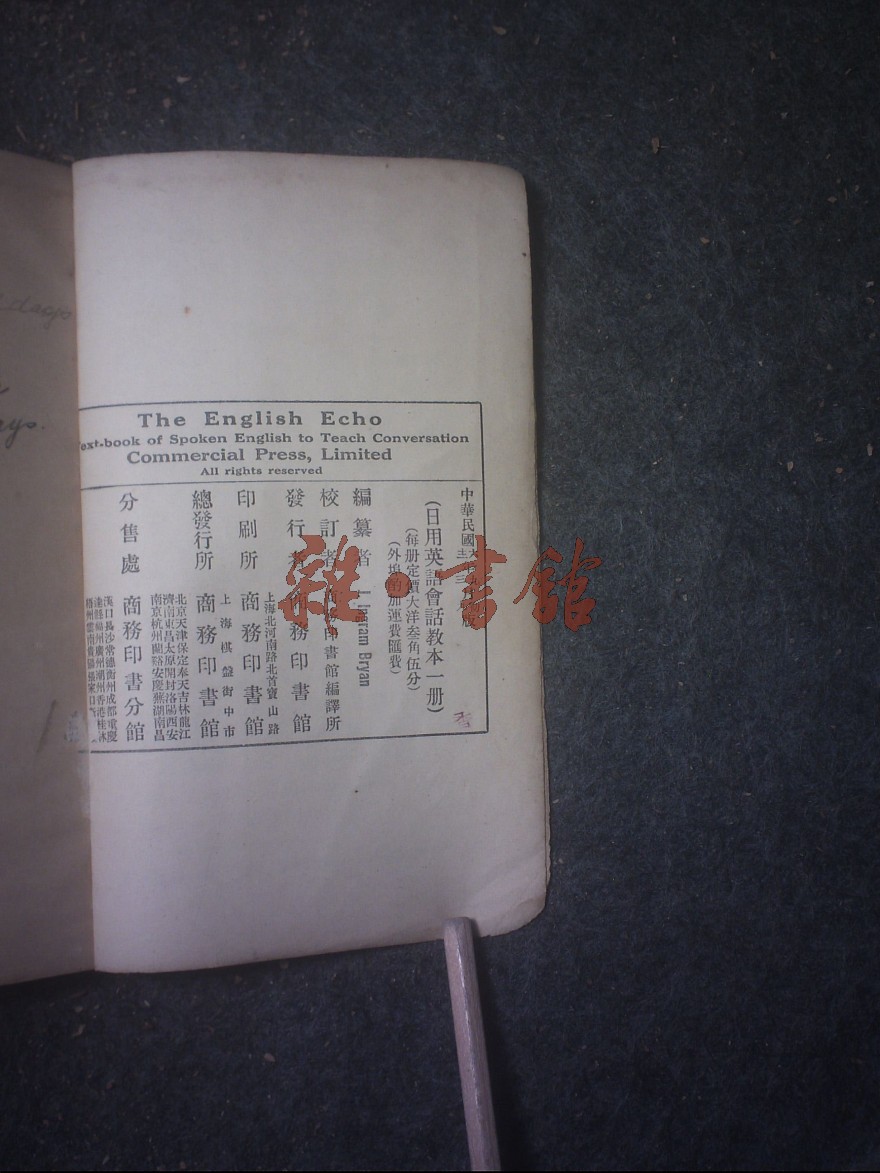 The English Echo
Text-book of Spoken English to Teach Conversation
Commercial Press, Limited
All rights reserved
中華民國
(日用英語會話教本一册)
(每册定價大洋叁角伍分)
(外埠酌加運費匯費)
編纂者 J. Ingram Bryan
校訂者 商務印書館編譯所
發行者 商務印書館
上海北河南路北首寶山路
印刷所 商務印書館
上海棋盤街中市
總發行所 商務印書館
北京天津保定奉天吉林龍江
濟南東昌太原開封洛陽西安
南京杭州蘭谿安慶蕪湖南昌
分售處 商務印書分館
漢口長沙常德衡州成都重慶
福州廣州潮州香港桂林
雜·書館
ays.